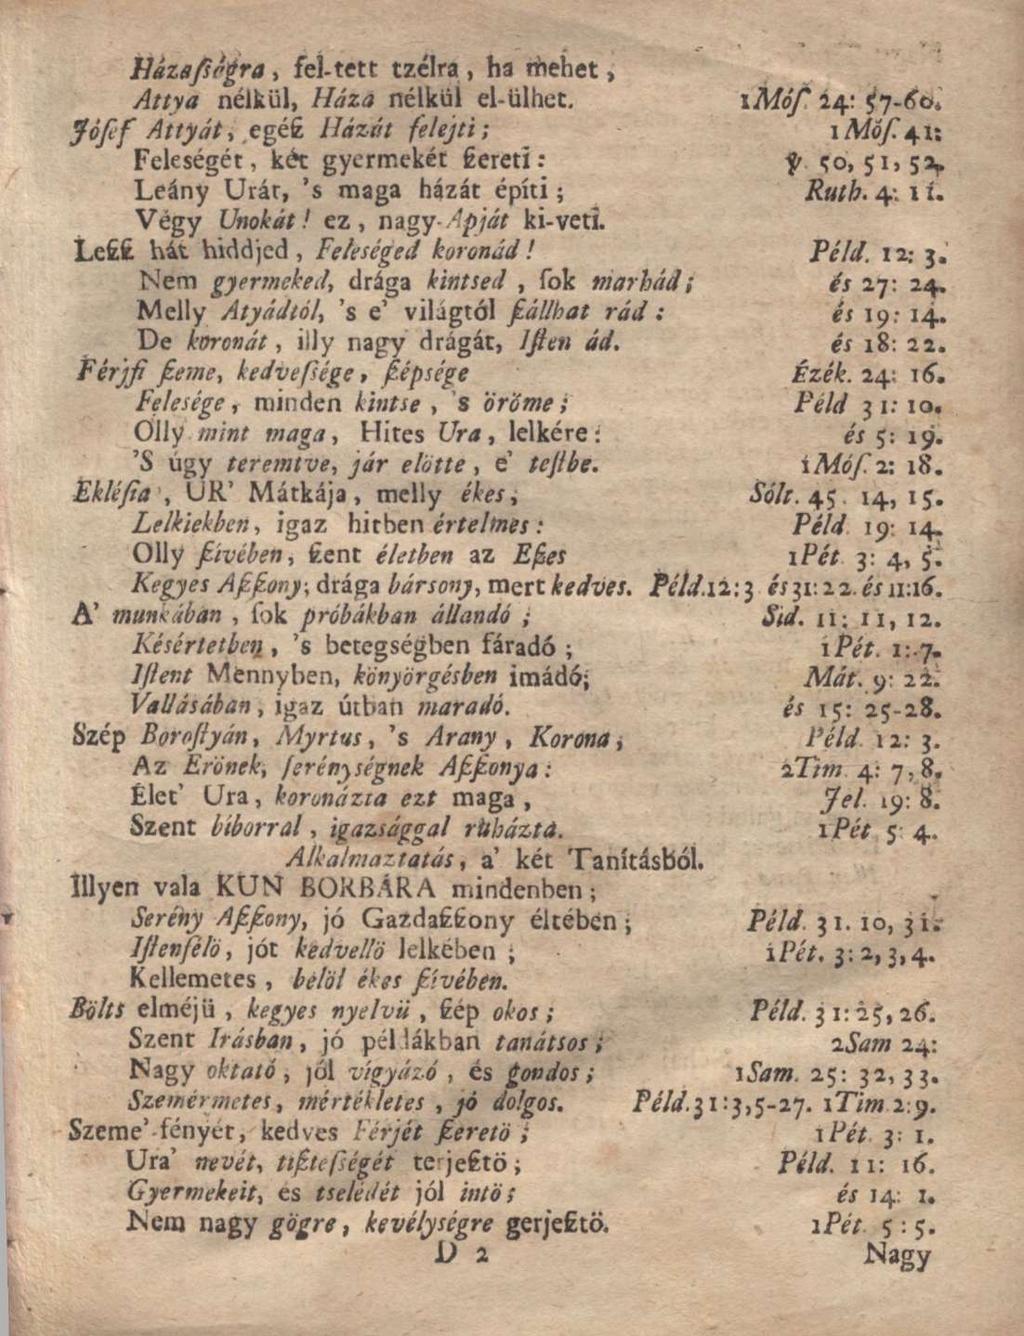 Házaſságra, fel-tett tzélra, ha mehet,
Attya nélkül, Háza nélkül el-ülhet. 1Móſ. 24: 57-60.
Jóſef Attyát, egéſz Házát felejti; 1 Móſ. 41:
Feleségét, két gyermekét ſzereti: ỳ. 50, 51, 52,
Leány Urát, 's maga házát építi; Ruth. 4: 11.
Végy Unokát! ez, nagy-Apját ki-veti.
Leſzſz hát hiddjed, Feleséged koronád! Péld. 12: 3.
Nem gyermeked, drága kintsed, ſok marhád; és 27: 24.
Melly Atyádtól, 's e' világtól ſzállhat rád: és 19: 14.
De koronát, illy nagy drágát, Iſten ád. és 18: 22.
Férjfi ſzeme, kedveſsége, ſzépsége Ézék. 24: 16.
Felesége, minden kintse, 's öröme; Péld 31: 10.
Olly mint maga, Hites Ura, lelkére: és 5: 19.
'S úgy teremtve, jár elötte, e' teſtbe. 1Móſ. 2: 18.
Ekléſia, UR' Mátkája, melly ékes, Sólt. 45. 14, 15.
Lelkiekben, igaz hitben értelmes: Péld. 19: 14.
Olly ſzívében, ſzent életben az Eſzes 1Pét. 3: 4, 5.
Kegyes Aſzſzony; drága bársony, mert kedves. Péld.12:3 és 31:22. és 11:16.
A' munkában, ſok próbákban állandó; Sid. 11: 11, 12.
Késértetben, 's betegségben fáradó; 1Pét. 1:.7.
Iſtent Mennyben, könyörgésben imádó; Mát. 9: 22.
Vallásában, igaz útban maradó. és 15: 25-28.
Szép Boroſtyán, Myrtus, 's Arany, Korona, Péld. 12: 3.
Az Erönek, ſerénységnek Aſzſzonya: 2Tim. 4: 7, 8.
Élet' Ura, koronázta ezt maga, Jel. 19: 8.
Szent bíborral, igazsággal ruházta. 1Pét 5: 4.
Alkalmaztatás, a' két Tanításból.
Illyen vala KUN BORBÁRA mindenben;
Serény Aſzſzony, jó Gazdaſzſzony éltében; Péld. 31. 10, 31.
Iſtenfélö, jót kedvellö lelkében; 1Pét. 3: 2, 3, 4.
Kellemetes, belöl ékes ſzívében.
Bölts elméjü, kegyes nyelvü, ſzép okos; Péld. 31: 25, 26.
Szent Irásban, jó példákban tanátsos; 2Sam 24:
Nagy oktató, jól vigyázó, és gondos; 1Sam. 25: 32, 33.
Szemérmetes, mértékletes, jó dolgos. Péld.31:3,5-27. 1Tim.2:9.
Szeme'-fényét, kedves Férjét ſzeretö; 1Pét. 3: 1.
Ura' nevét, tiſzteſségét terjeſztö; Péld. 11: 16.
Gyermekeit, és tselédét jól intö; és 14: 1.
Nem nagy gögre, kevélységre gerjeſztö. 1Pét 5: 5.
D 2 Nagy